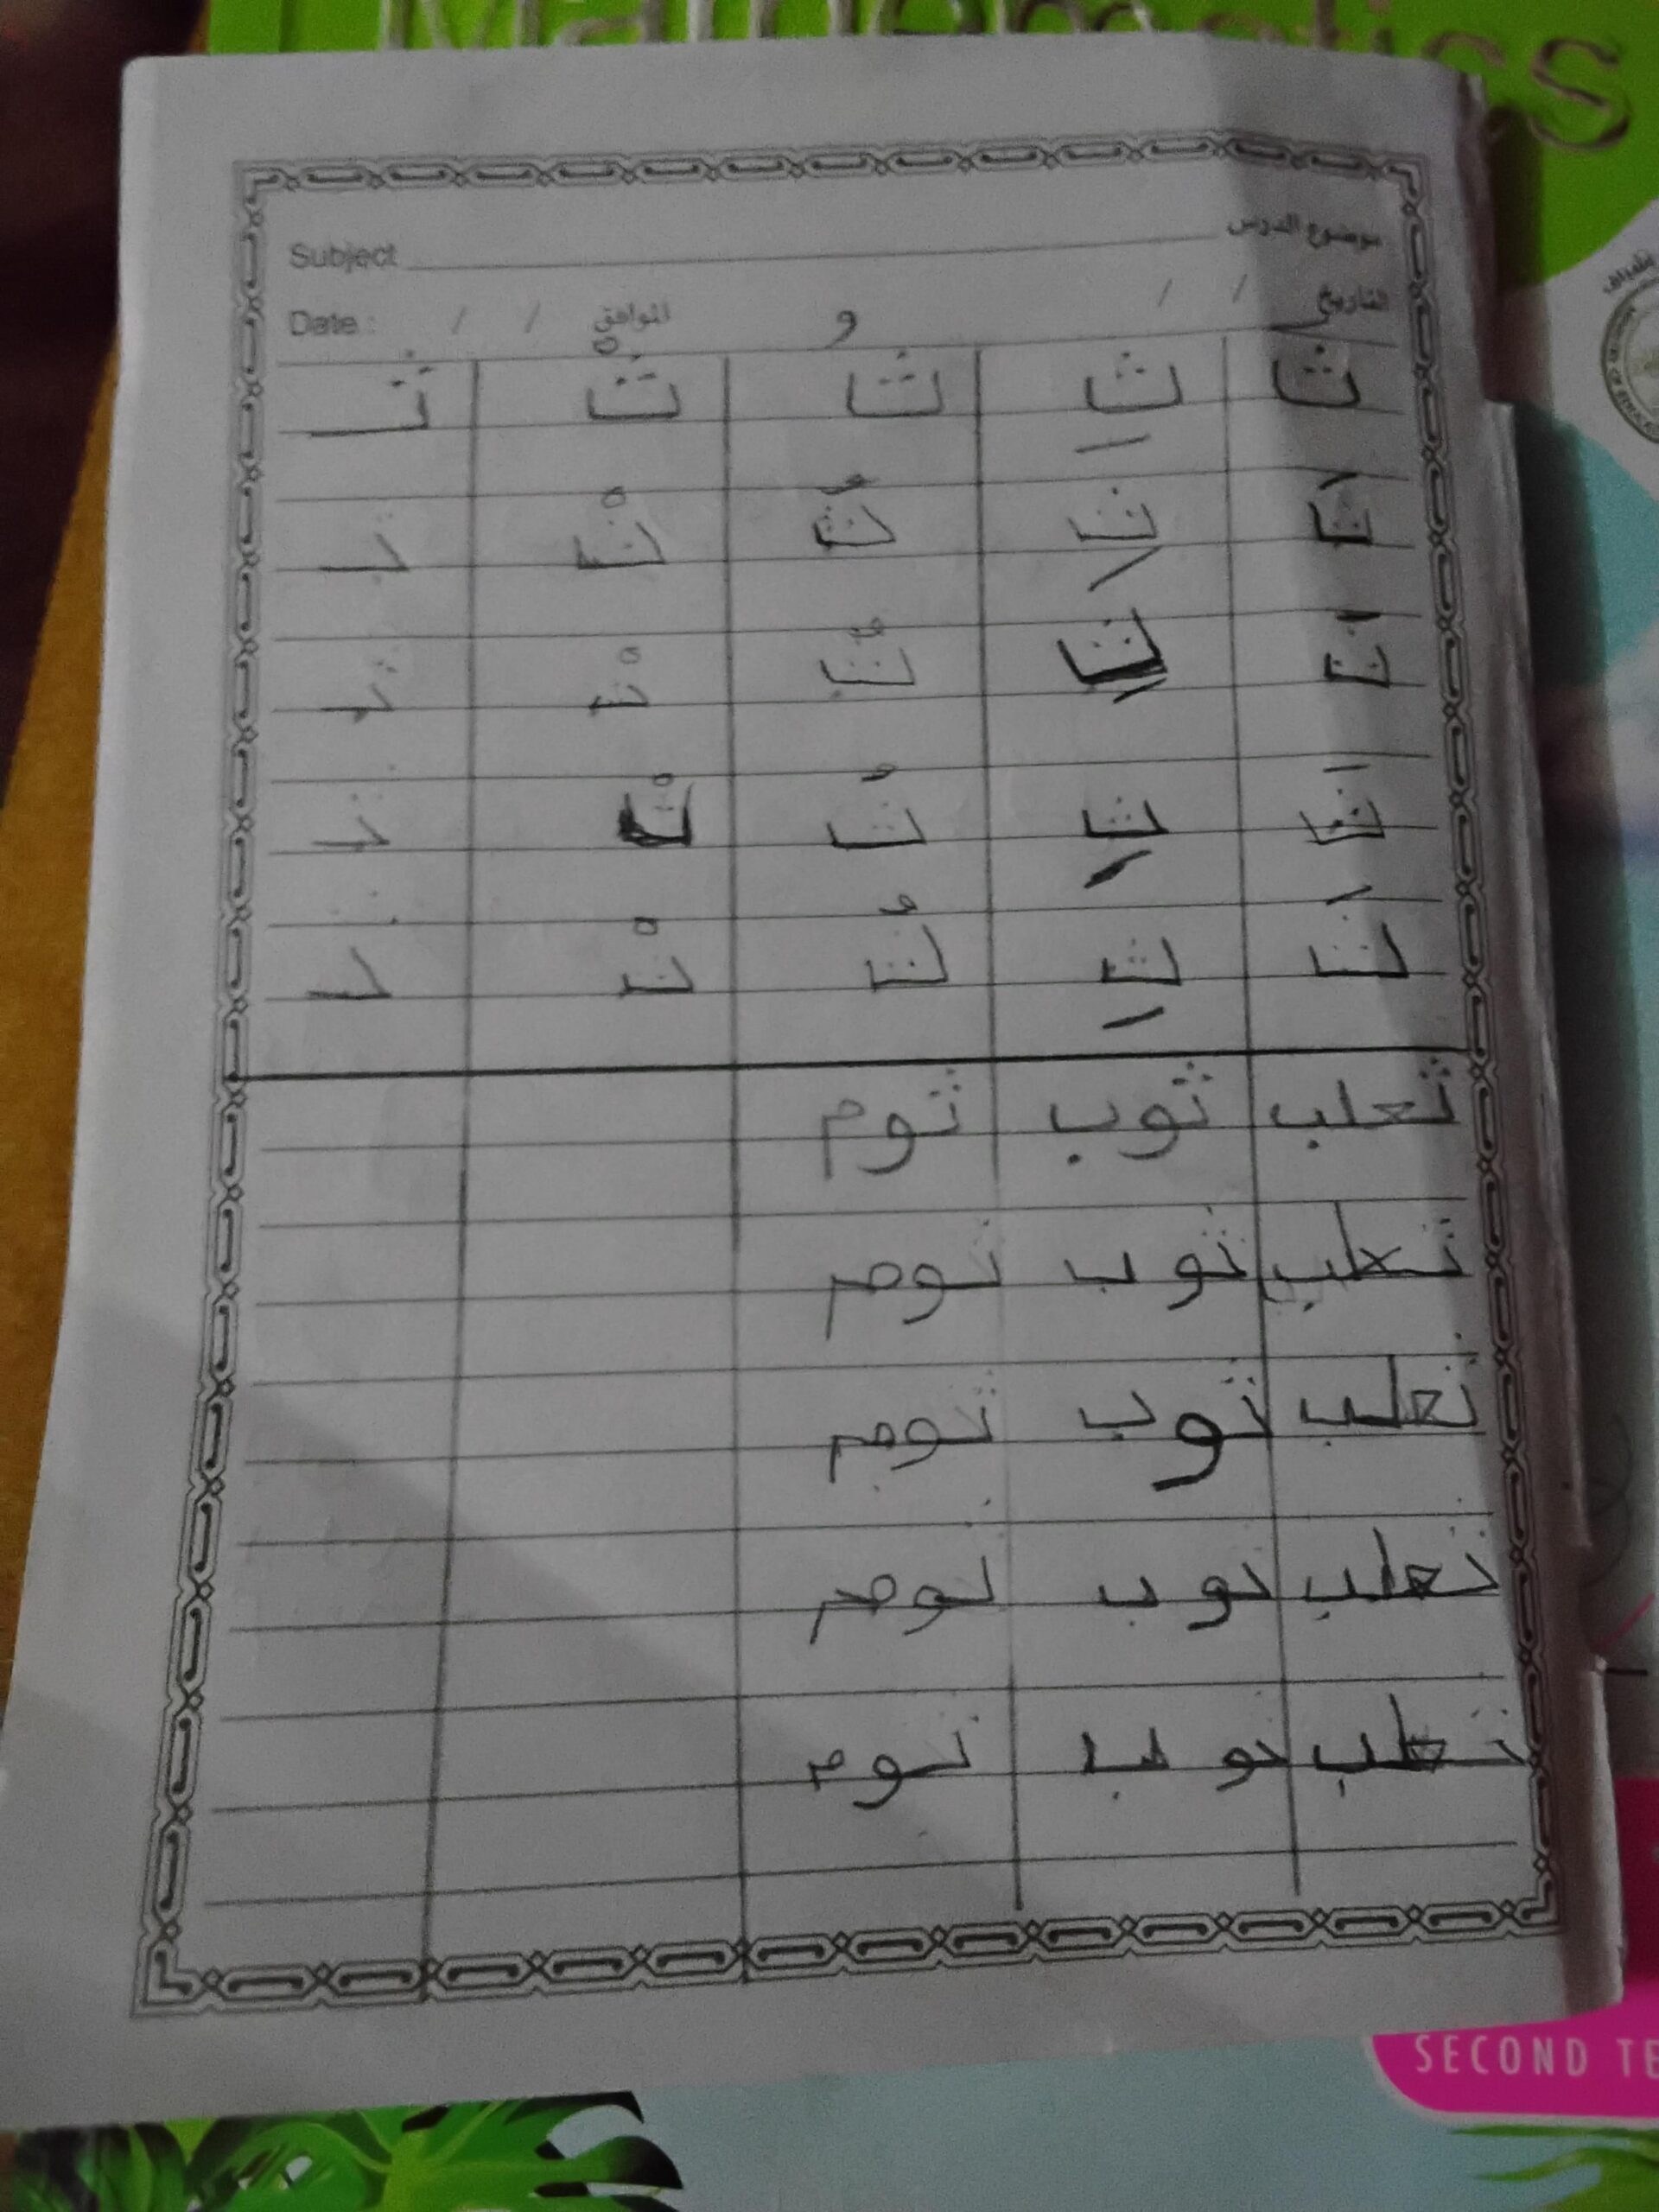 Mathematics
موضوع الدرس
Subject
التاريخ / / الموافق / / Date :
ثَ ثِ ثُ ثْ ثـ
ثَ ثِ ثُ ثْ ثـ
ثَ ثِ ثُ ثْ ثـ
ثَ ثِ ثُ ثْ ثـ
ثَ ثِ ثُ ثْ ثـ
ثعلب ثوب ثوم
ثعلب ثوب ثوم
ثعلب ثوب ثوم
ثعلب ثوب ثوم
ثعلب ثوب ثوم
SECOND TE